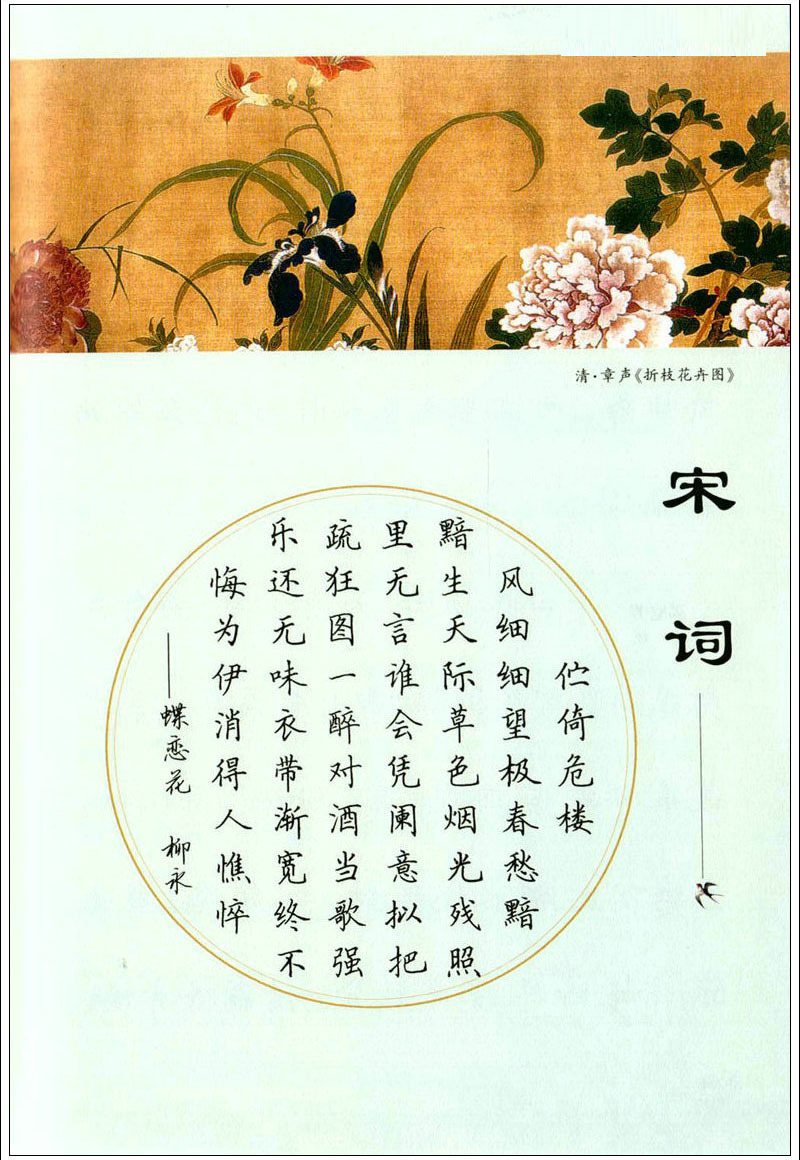 清·章声《折枝花卉图》
宋词
伫倚危楼
风细细望极春愁黯
黯生天际草色烟光残照
里无言谁会凭阑意拟把
疏狂图一醉对酒当歌强
乐还无味衣带渐宽终不
悔为伊消得人憔悴
——蝶恋花 柳永